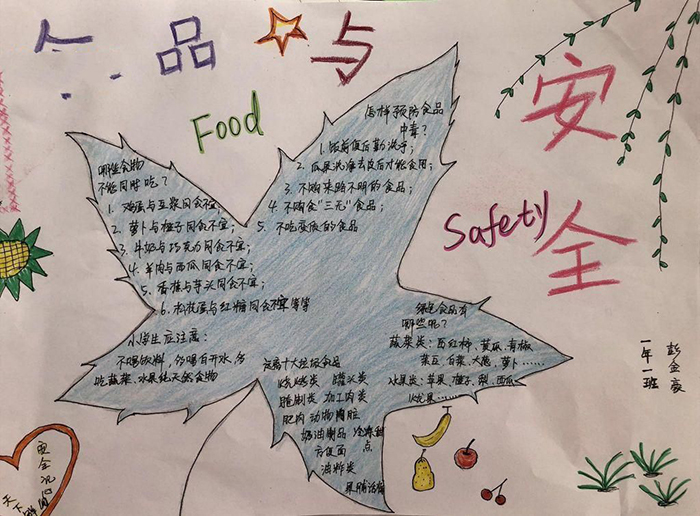 食品与
安全
Food
Safety
怎样预防食品
中毒?
1. 饭前便后勤洗手;
2. 瓜果洗净去皮后才能食用;
3. 不购来路不明的食品;
4. 不购食“三无”食品;
5. 不吃变质的食品
哪些食物
不能同时吃?
1. 鸡蛋与豆浆同食不宜;
2. 萝卜与橙子同食不宜;
3. 牛奶与巧克力同食不宜;
4. 羊肉与西瓜同食不宜;
5. 香蕉与芋头同食不宜;
6. 松花蛋与红糖同食不宜等等
小学生应注意:
不喝饮料,多喝白开水,多
吃蔬菜、水果纯天然食物
十大垃圾食品
烧烤类 罐头类
腌制类 加工肉类
肥肉 动物内脏
奶油制品 冷冻甜
点
方便面
油炸类
果脯话梅
绿色食品有
哪些呢?
蔬菜类:西红柿、黄瓜、青椒
菜豆、白菜、大葱、萝卜……
水果类:苹果、橙子、梨、西瓜
火龙果……
彭金豪
一年一班
安全记心间
天天